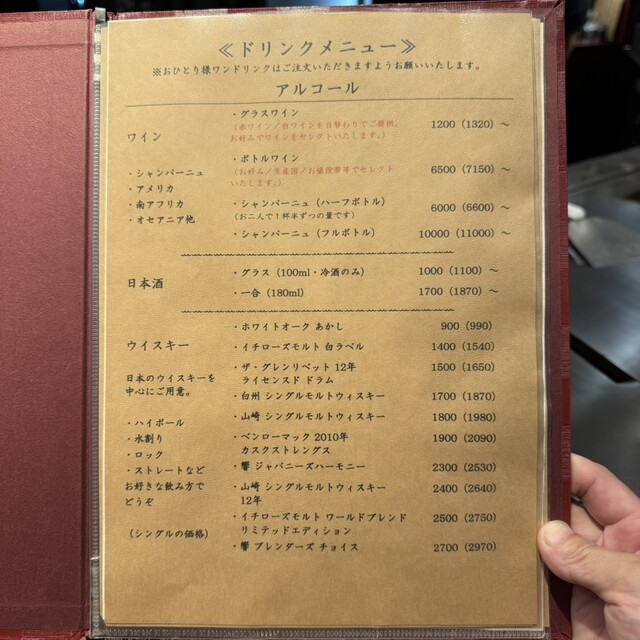 ≪ドリンクメニュー≫
※おひとり様ワンドリンクはご注文いただきますようお願いいたします。
アルコール
ワイン
・シャンパーニュ
・アメリカ
・南アフリカ
・オセアニア他
・グラスワイン
(赤ワイン/白ワインを日替わりでご提供。
お好みでワインをセレクトいたします。)
1200 (1320) ~
・ボトルワイン
(お好み/生産国/お値段帯等でセレクト
いたします。)
6500 (7150) ~
・シャンパーニュ (ハーフボトル)
(お二人で1杯半ずつの量です)
6000 (6600) ~
・シャンパーニュ (フルボトル) 10000 (11000) ~
日本酒
・グラス (100ml・冷酒のみ) 1000 (1100) ~
・一合 (180ml) 1700 (1870) ~
ウイスキー
日本のウイスキーを
中心にご用意。
・ハイボール
・水割り
・ロック
・ストレートなど
お好きな飲み方で
どうぞ
(シングルの価格)
・ホワイトオーク あかし 900 (990)
・イチローズモルト 白ラベル 1400 (1540)
・ザ・グレンリベット 12年
ライセンスド ドラム
1500 (1650)
・白州 シングルモルトウィスキー 1700 (1870)
・山崎 シングルモルトウィスキー 1800 (1980)
・ベンローマック 2010年
カスクストレングス
1900 (2090)
・響 ジャパニーズハーモニー 2300 (2530)
・山崎 シングルモルトウィスキー
12年
2400 (2640)
・イチローズモルト ワールドブレンド
リミテッドエディション
2500 (2750)
・響 ブレンダーズ チョイス 2700 (2970)